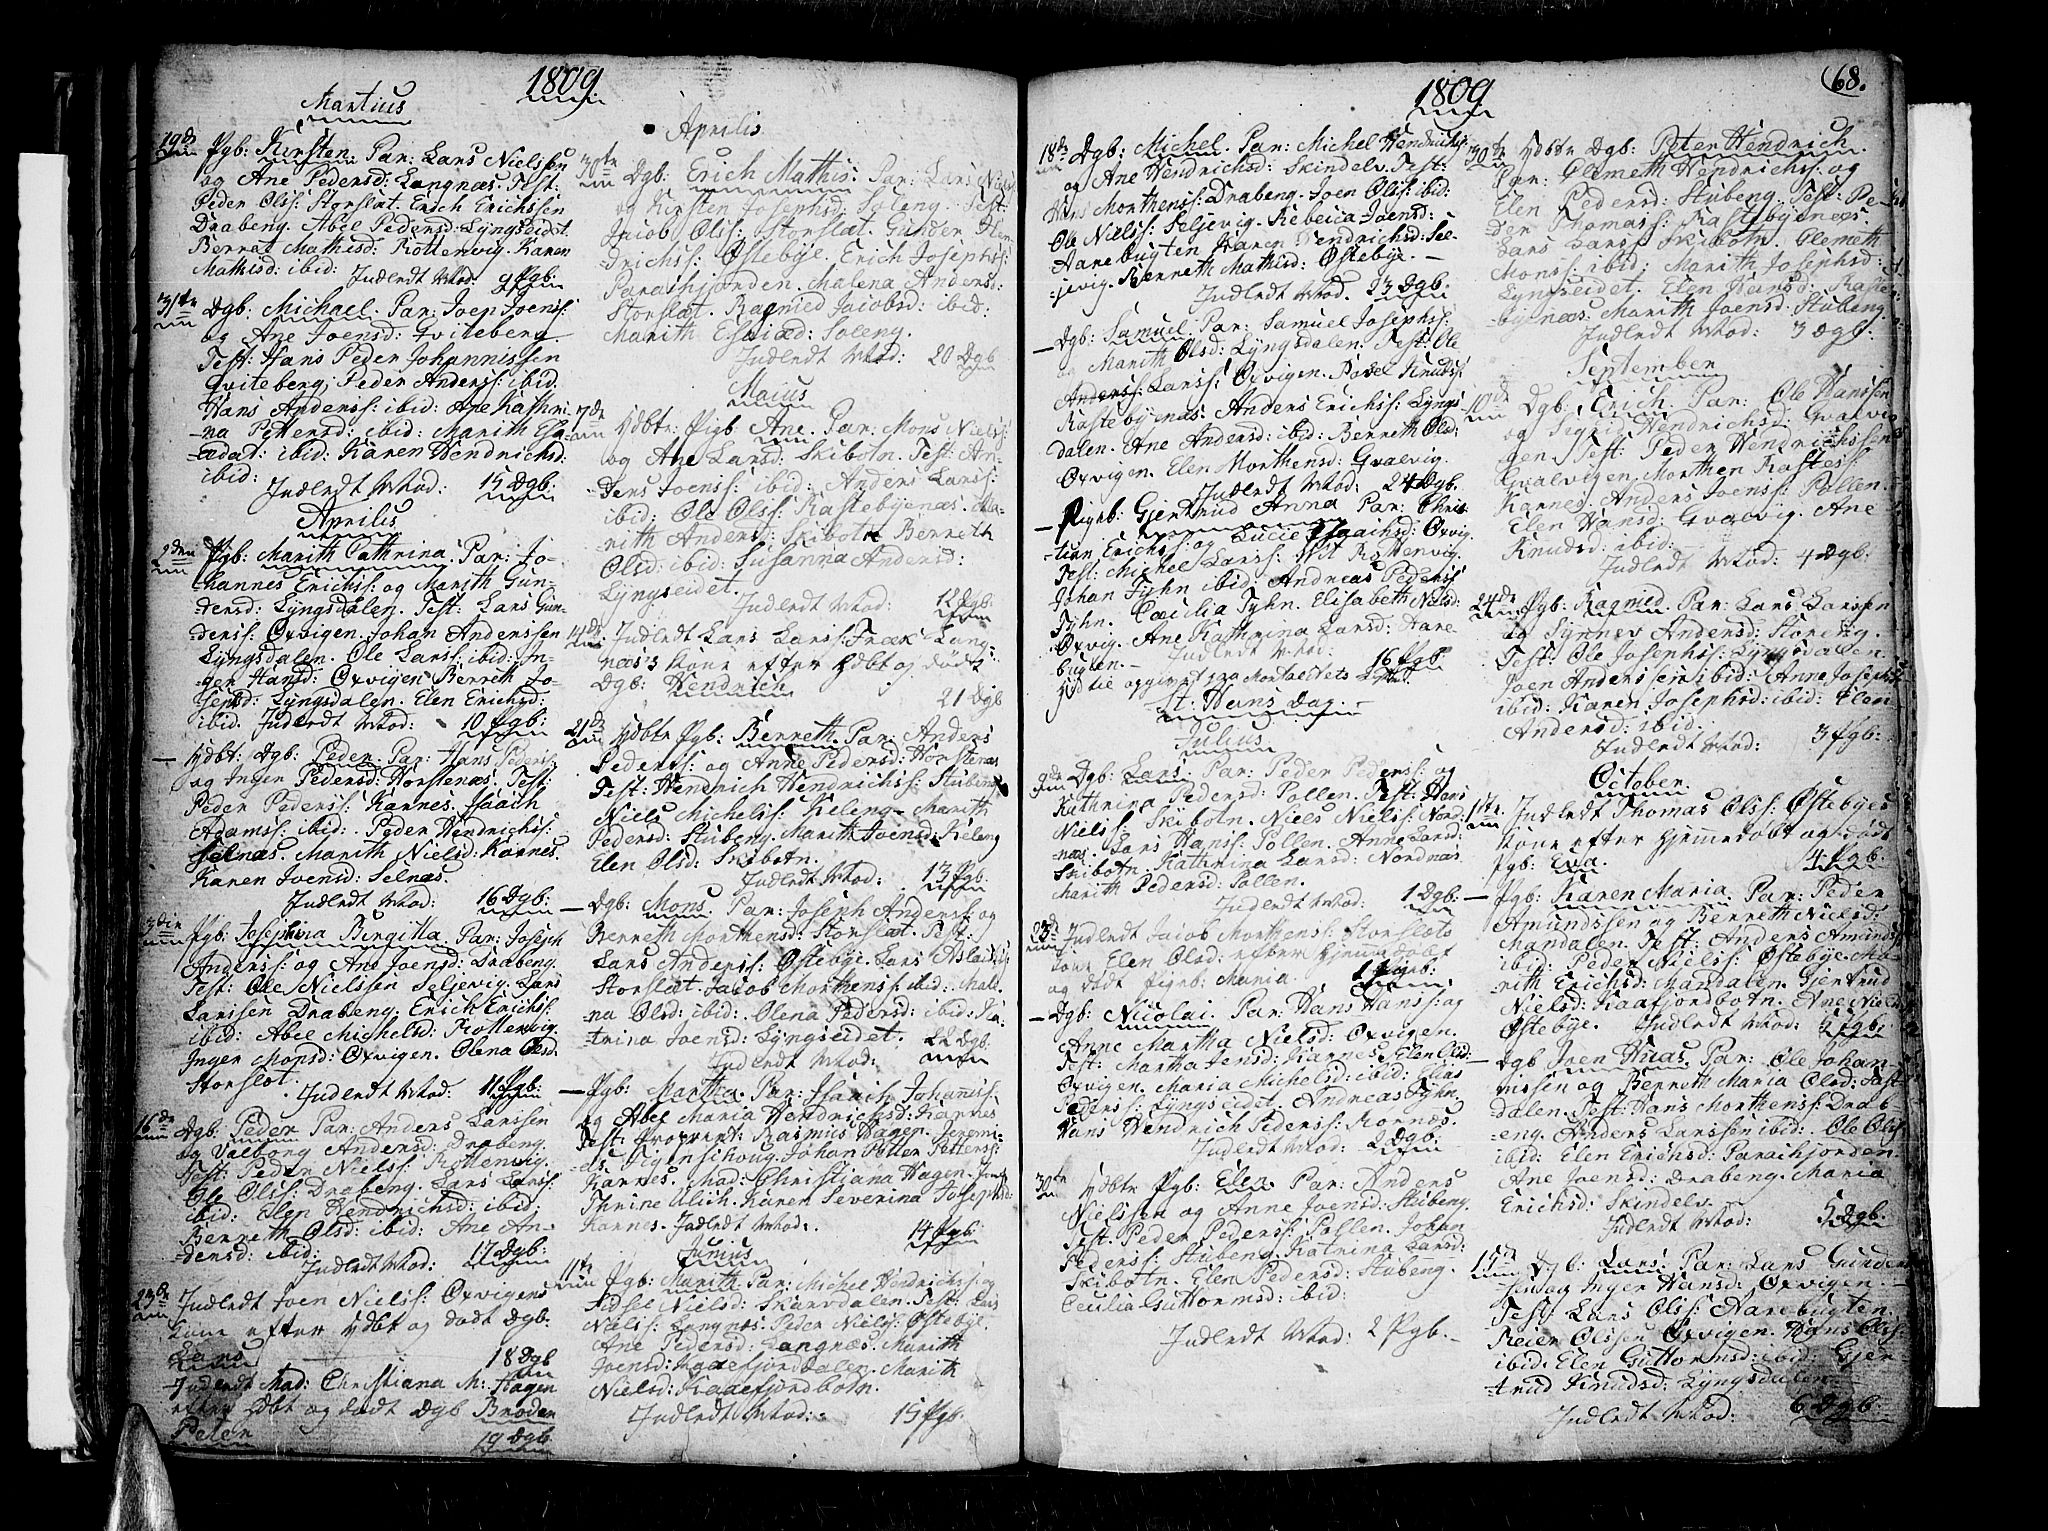 1809
Martius
19de Pgb: Kirsten. Par: Lars Nielssen
og Ane Pedersd: Langnæs. Test:
Peder Olss: Storslæt. Erich Erichssen
Drabeng. Abel Pedersd: Lyngseidet.
Berret Mathisd: Rottenvig. Karen
Mathisd: ibid: Indledt Mod: 9 Pgb:
31te Dgb: Michael. Par: Joen Joenss:
og Ane Joensd: Qviteberg.
Test: Hans Peder Johannissen
Qviteberg, Peder Anderss: ibid.
Hans Anderss: ibid: Ane Kathri-
na Pettersd: ibid: Marith Esa-
iædæd: ibid: Karen Hendrichsd:
ibid: Indledt Mod: 15 Dgb:
Aprilis
2den Pgb: Marith Cathrina. Par: Jo-
hannes Erichss: og Marith Gun-
dersd: Lyngsdalen. Test: Lars Gun-
derss: Oxvigen. Johan Anderssen
Lyngsdalen. Ole Larss: ibid: In-
ger Hansd: Oxvigen. Berreth Jo-
sephsd: Lyngsdalen. Elen Erichsd:
ibid. Indledt Mod: 10 Pgb:
— Hdbt: Dgb: Peder. Par: Hans Pederss:
og Inger Pedersd: Horsenæs. Test:
Peder Pederss: Karnes. Isaach
Adamss: ibid: Peder Hendrichss:
Selnæs. Marith Nielsd: Karnes.
Karen Joensd: Selnæs.
Indledt Mod: 16 Dgb:
3die Pgb: Josephina Birgitta. Par: Joseph
Anderss: og Ane Joensd: Draberg.
Test: Ole Nielssen Seljevig. Lars
Larssen Drabeng. Erich Erichss:
ibid: Abel Michelsd: Rottenvig.
Inger Monsd: Oxvigen. Olena Olsd:
Storslæt. Indledt Mod: 11 Pgb:
16de Dgb: Peder Par: Anders Larssen
og Valborg Andersd: Drabeng.
Test: Peder Nielss: Rottenvig.
Ole Olss: Drabeng. Lars Larss:
ibid: Elen Hendrichsd: ibid.
Berreth Olsd: ibid: Ane An-
dersd: ibid: Indledt Mod: 17 Dgb:
23de Indledt Joen Nielss: Oxvigens
Kone efter Hdbt og dødt Dgb:
18 Dgb
Indledt Mad: Christiana M: Hagen
efter Hdbt og dødt Dgb Broder
Peter 19 Dgb.
Aprilis
30te Dgb: Erich Mathis: Par: Lars Niels:
og Kirsten Josephsd: Soleng. Test:
Jacob Olss: Storslæt. Gunder Hen-
drichss: Østebye. Erich Josephss:
Parachjorden. Malena Andersd:
Storslæt. Ragnild Jacobsd: ibid:
Marith Esaiæd: Soleng.
Indledt Mod: 20 Dgb
Maius
7de Hdbtr: Pigb Ane. Par: Mons Nielss:
og Ane Larsd: Skibotn. Test: An-
ders Joenss: ibid: Anders Larss:
ibid: Ole Olss: Rastebyenæs. Ma-
rith Andersd: Skibotn Berreth
Olsd: ibid: Susanna Andersd:
Lyngseidet.
Indledt Mod: 12 Dgb:
14de Indledt Lars Larss: Træk Lang-
næs's Kone efter Hdbt og dødt
Dgb: Hendrich 21 Dgb
21de Hdbtr Pgb: Berreth. Par: Anders
Pederss: og Anne Pedersd: Horsenæs
Test: Hendrich Hendrichss: Stubeng.
Niels Michelss: Keleng. Marith
Pedersd: Stubeng. Marith Joensd: Keleng
Elen Olsd: Skibotn.
Indledt Mod: 13 Pgb:
— Dgb: Mons. Par: Joseph Anderss: og
Berreth Morthensd: Storslæt. Test:
Lars Anderss: Østebye. Lars Aslachs:
Storslæt. Jacob Morthenss: ibid: Male-
na Olsd: ibid: Olena Pedersd: ibid: Ka-
trina Joensd: Lyngseidet.
Indledt Mod: 22 Dgb:
— Pgb: Martha. Par: Isaach Johaniss:
og Abel Maria Hendrichsd: Karnes
Test: Propprent: Rasmus Hagen. Jeremi-
as Figenschoug. Johan Petter Petterss:
Karnes. Mad: Christiana Hagen.
Thrine Ulich. Karen Severina Josephsd:
Karnes. Indledt Mod: 14 Pgb:
Junius
11te Pgb: Marith. Par: Michel Hendrichss: og
Sidsel Nielsd: Skarvdalen. Test: Lars
Nielss: Langnæs. Peder Nielss: Østebye.
Ane Pedersd: Langnæs. Marith
Joensd: Kaaefjorddalen. Marith
Nielsd: Kaaefjordbotn.
Indledt Mod: 15 Pgb.
1809
68.
18de Dgb: Michel. Par: Michel Hendrichs:
og Ane Hendrichsd: Skindelv. Test:
Hans Morthenss: Drabeng. Joen Olss: ibid:
Ole Nielss: Seljevig. Rebecca Joensd:
Aarebugten Karen Hendrichsd: Sel-
jevig. Berreth Mathisd: Østebye. —
Indledt Mod. 23 Dgb:
— Dgb: Samuel. Par: Samuel Josephss:
og Marith Olsd: Lyngsdalen. Test: Ole
Anderss: Larss: Oxvigen. Povel Knudss:
Rastebyenæs. Anders Erichss: Lyngs
dalen. Ane Andersd: ibid: Berreth Olsd:
Oxvigen. Elen Morthensd: Qvalvig.
Indledt Mod: 24 Dgb:
— Pigeb: Gjertrud Anna. Par: Chris
tian Erichss: og Lucie Isaachsd: Oxvig.
Test: Michel Larss: Rottenvig.
Johan Fyhn ibid: Andreas Pederss:
Fyhn. Cæcilia Fyhn. Elisabeth Nielsd:
Oxvig. Ane Kathrina Larsd: Aare
bugten. — Indledt Mod: 16 Pgb.
hid til opgivet paa Mortalitets Listen.
St. Hans Dag. —
Julius
9de Dgb: Lars. Par: Peder Pederss: og
Kathrina Pedersd: Pollen. Test: Hans
Nielss: Skibotn. Niels Nielss: Nord-
næs. Lars Hanss: Pollen. Anne Larsd:
Skibotn. Kathrina Larsd: Nordnæs
Marith Pedersd: Pollen.
Indledt Mod: 1 Dgb:
23de Indledt Jacob Morthenss: Storslæts
Kone Elen Olsd: efter hjemmedøbt
og dødt Pigeb: Maria. 1 Pgb:
— Dgb: Nicolai. Par: Hans Hanss: og
Anne Martha Nielsd: Oxvigen.
Test: Martha Jensd: Karnes. Elen Olsd:
Oxvigen. Maria Michelsd: ibid: Elias
Pederss: Lyngseidet. Andreas Fyhn.
Hans Hendrich Pederss: Kornæs.
Indledt Mod: 2 Dgb:
30te Hdbtr Pgb: Elen. Par: Anders
Nielssen og Anne Joensd: Stubeng.
Test. Peder Pederss: Pollen. Johan
Pederss: Stubeng. Katrina Larsd:
Skibotn. Elen Pedersd: Stubeng.
Cecilia Guttormsd: ibid:
Indledt Mod: 2 Pgb. —
30te Hdbtr Dgb: Peter Hendrich.
Par: Clemeth Hendrichss: og
Elen Pedersd: Stubeng. Test: Pe-
der Thomass: Rastebyenæs.
Lars Larss: Skibotn. Clemeth
Monss: ibid: Marith Josephsd:
Lyngseidet. Elen Hansd: Raste-
byenæs. Marith Joensd: Stubeng
Indledt Mod: 3 Dgb:
September
10de Dgb: Erich. Par: Ole Hanssen
og Sigrid Hendrichsd: Qvalvig
gen. Test: Peder Hendrichssen
Qvalvigen. Morthen Rastes:
Karnes. Anders Joenss: Pollen.
Elen Hansd: Qvalvig. Ane
Knudsd: ibid:
Indledt Mod: 4 Dgb:
24de Pgb: Ragnild. Par: Lars Larssen
og Synnev Andersd: Storeng.
Test: Ole Josephss: Lyngsdalen.
Joen Anderssen ibid: Anne Josephsd:
ibid: Karen Josephsd: ibid: Elen
Andersd: ibid:
Indledt Mod: 3 Pgb:
October.
1ste Indledt Thomas Olss: Østebyes
Kone efter hjemmedøbt og dødt
Pgb: Eva. 4 Pgb:
— Pgb: Karen Maria. Par: Peder
Amundssen og Berreth Nielsd:
Mandalen. Test: Anders Amundss:
ibid: Peder Nielss: Østebye. Ma-
rith Erichsd: Mandalen. Gjertrud
Nielsd: Kaafjordbotn. Ane Nielsd:
Østebye. Indledt Mod: 5 Pgb:
— Dgb Joen Huas. Par: Ole Johan
nissen og Berreth Maria Olsd: Fast-
dalen. Test: Hans Morthenss: Drab-
eng. Anders Larssen ibid: Ole Olss:
ibid: Elen Erichsd: Parachjorden.
Ane Joensd: Drabeng. Maria
Erichsd: Skindelv.
Indledt Mod: 5 Dgb:
15de Dgb: Lars. Par: Lars Gunders
sen og Inger Hansd: Oxvigen. —
Test Lars Olss: Aarebugten.
Reier Olssen Oxvigen. Hans Olss:
ibid. Elen Guttormsd: ibid: Gjer-
trud Knudsd: Lyngsdalen.
Indledt Mod: 6 Dgb: